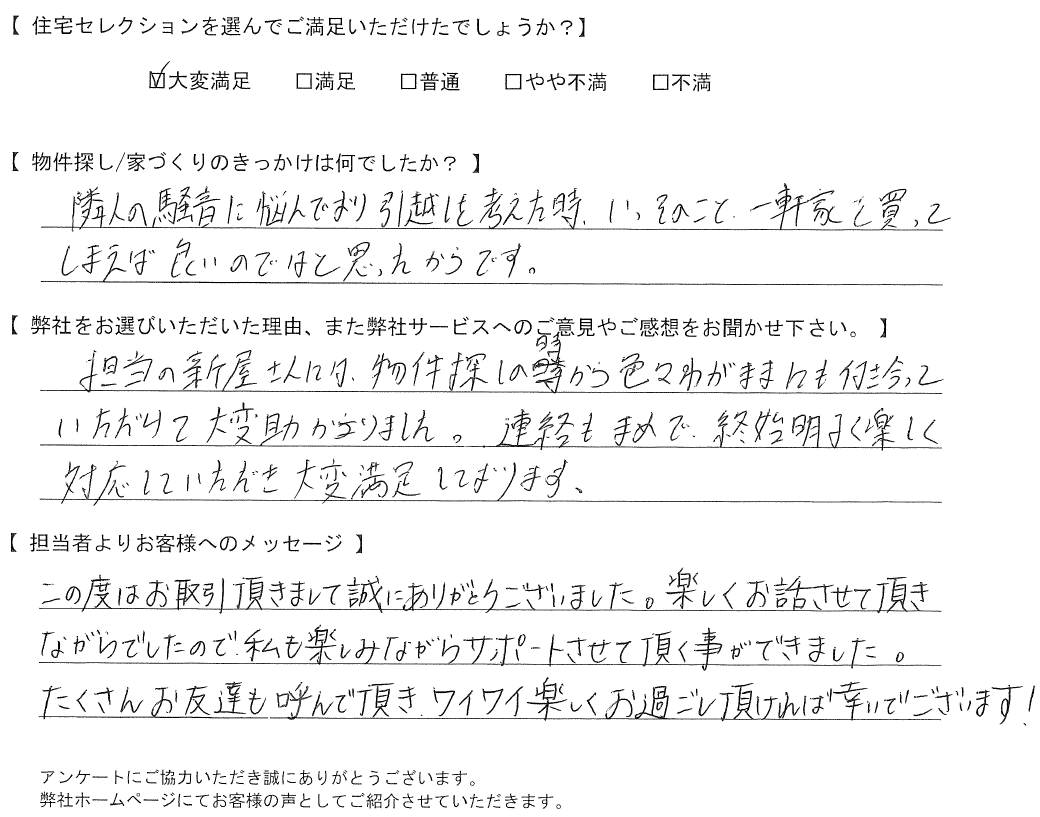 【 住宅セレクションを選んでご満足いただけたでしょうか?】
☑大変満足 □満足 □普通 □やや不満 □不満
【 物件探し/家づくりのきっかけは何でしたか? 】
隣人の騒音に悩んでおり引越しを考えた時、いっそのこと、一軒家を買って
しまえば良いのではと思ったからです。
【 弊社をお選びいただいた理由、また弊社サービスへのご意見やご感想をお聞かせ下さい。 】
担当の新屋さんには、物件探しの際から色々わがままにも付き合って
いただけて大変助かりました。連絡もまめで、終始明るく楽しく
対応していただき大変満足しております。
【 担当者よりお客様へのメッセージ 】
この度はお取引頂きまして誠にありがとうございました。楽しくお話させて頂き
ながらでしたので、私も楽しみながらサポートさせて頂く事ができました。
たくさんお友達も呼んで頂き、ワイワイ楽しくお過ごし頂ければ幸いでございます!
アンケートにご協力いただき誠にありがとうございます。
弊社ホームページにてお客様の声としてご紹介させていただきます。